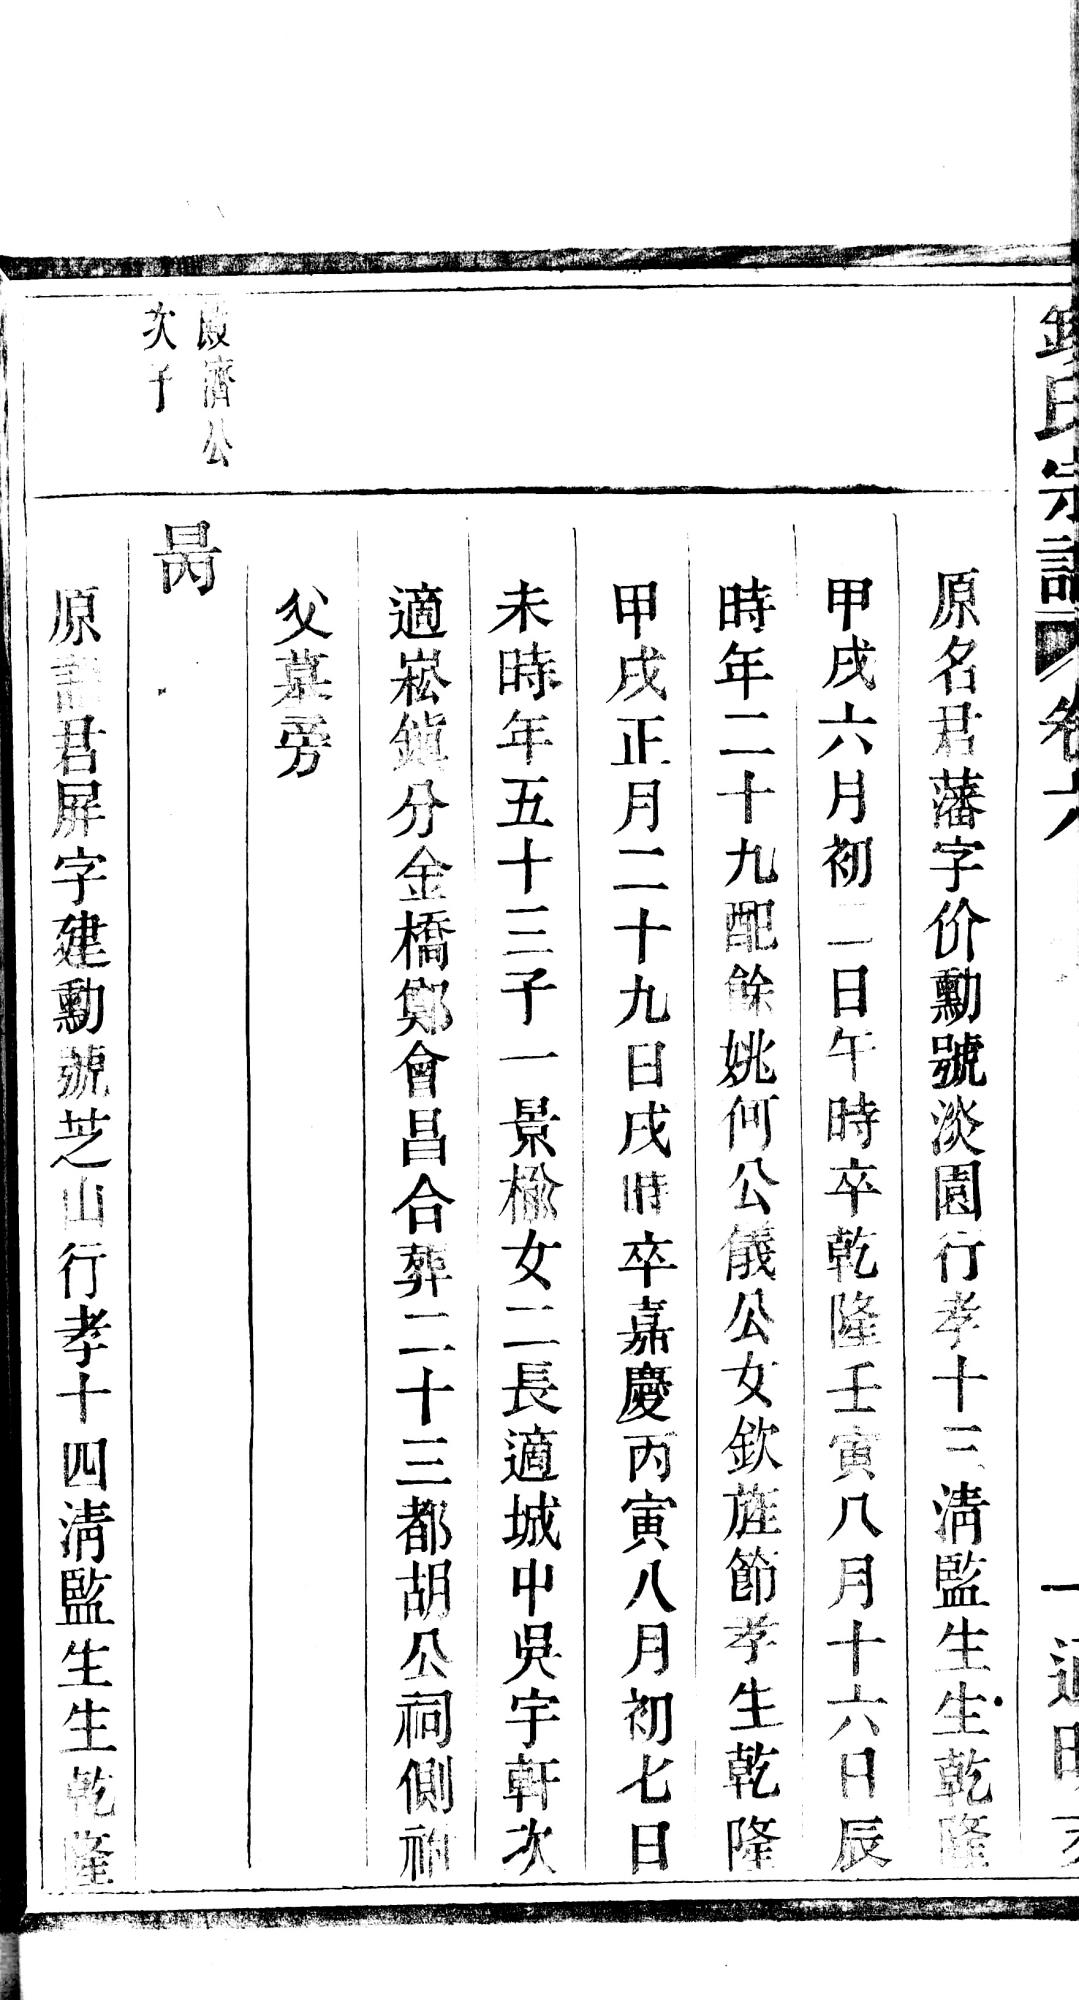 氏宗譜 卷六 一
原名君藩字价勳號淡園行孝十三清監生生乾隆
甲戌六月初二日午時卒乾隆壬寅八月十六日辰
時年二十九配餘姚何公儀公女欽旌節孝生乾隆
甲戌正月二十九日戌時卒嘉慶丙寅八月初七日
未時年五十三子一景檢女二長適城中吳宇軒次
適崧鎭分金橋鄭會昌合葬二十三都胡公祠側祔
父墓旁
殿濟公
次子
昺
原譜君屏字建勳號芝山行孝十四清監生生乾隆